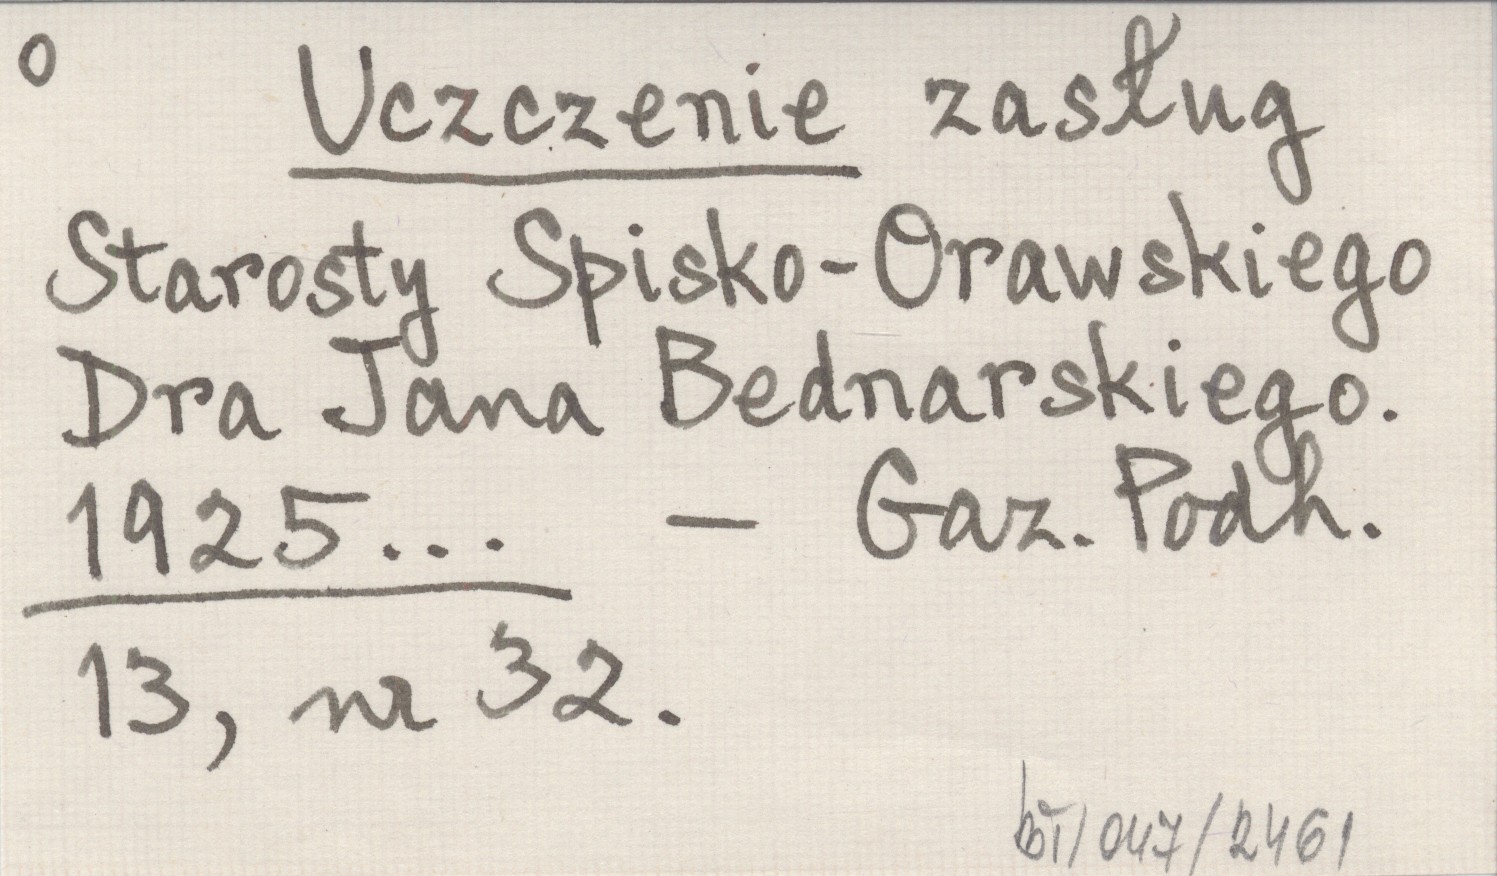 o
Uczczenie zasług
Starosty Spisko-Orawskiego
Dra Jana Bednarskiego.
1925... – Gaz. Podh.
13, nr 32.
/047/2461